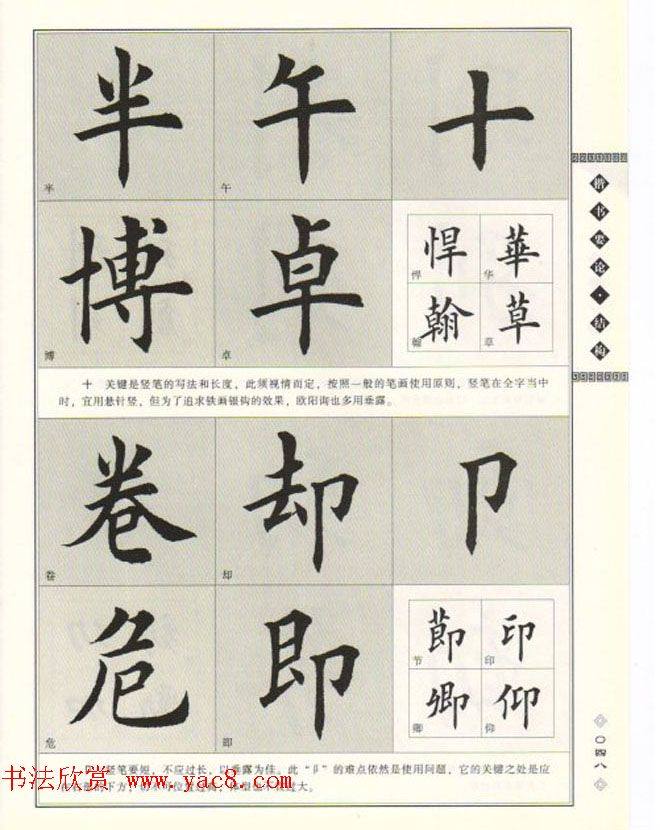 半 午 十
半 午
博 卓 悍 華
翰 草
博 卓 悍 华 翰 草
十 关键是竖笔的写法和长度，此须视情而定，按照一般的笔画使用原则，竖笔在全字当中
时，宜用悬针竖，但为了追求铁画银钩的效果，欧阳询也多用垂露。
卷 却 卩
卷 却
危 即 節 印
卿 仰
危 即 节 印 卿 仰
竖笔要短，不应过长，以垂露为佳。此“卩”的难点依然是使用问题，它的关键之处是应
的下方，
过大。
楷书要论·结构
〇四八
书法欣赏 www.yac8.com